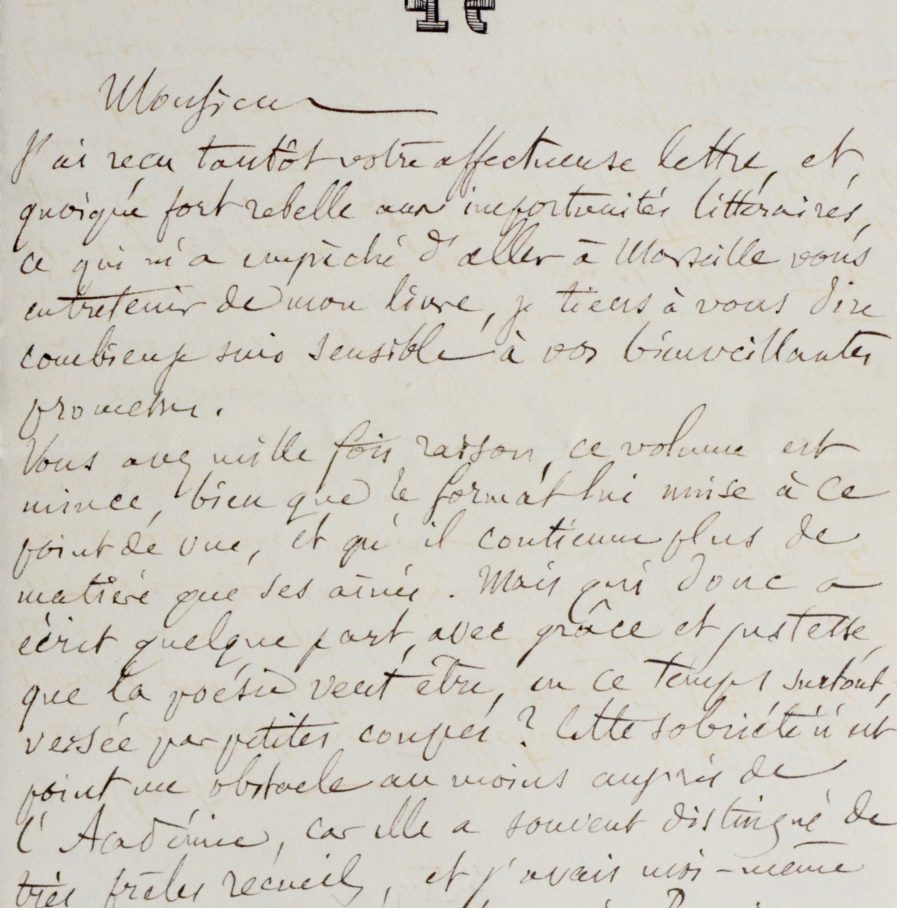 Monsieur
J'ai reçu tantôt votre affectueuse lettre, et,
quoique fort rebelle aux importunités littéraires,
ce qui m'a empêché d'aller à Marseille vous
entretenir de mon livre, je tiens à vous dire
combien je suis sensible à vos bienveillantes
promesses.
Vous avez mille fois raison, ce volume est
mince, bien que le format lui nuise à ce
point de vue, et qu'il contienne plus de
matière que ses aînés. Mais qui donc a
écrit quelque part, avec grâce et justesse,
que la poésie veut être, en ce temps surtout,
versée par petites coupes ? Cette sobriété n'est
point un obstacle au moins auprès de
l'Académie, car elle a souvent distingué de
très frêles recueils, et j'avais moi-même